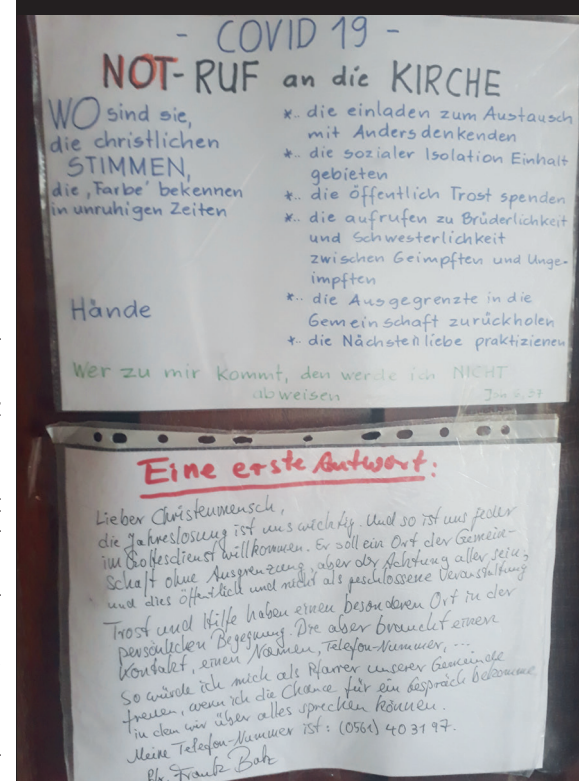 - COVID 19 -
NOT-RUF an die KIRCHE
WO sind sie,
die christlichen
STIMMEN,
die ‚Farbe' bekennen
in unruhigen Zeiten
Hände
*.. die einladen zum Austausch
mit Andersdenkenden
*.. die sozialer Isolation Einhalt
gebieten
*.. die öffentlich Trost spenden
*.. die aufrufen zu Brüderlichkeit
und Schwesterlichkeit
zwischen Geimpften und Unge-
impften
*.. die Ausgegrenzte in die
Gemeinschaft zurückholen
*.. die Nächstenliebe praktizieren
Wer zu mir kommt, den werde ich NICHT
abweisen
Joh 6,37
Eine erste Antwort:
Lieber Christenmensch,
die Jahreslosung ist uns wichtig. Und so ist uns jeder
im Gottesdienst willkommen. Er soll ein Ort der Gemein-
schaft ohne Ausgrenzung, aber der Achtung aller sein,
und dies öffentlich und nicht als geschlossene Veranstaltung
Trost und Hilfe haben einen besonderen Ort in der
persönlichen Begegnung. Die aber braucht einen
Kontakt, einen Namen, Telefon-Nummer, ...
So würde ich mich als Pfarrer unserer Gemeinde
freuen, wenn ich die Chance für ein Gespräch bekomme,
in dem wir über alles sprechen können.
Meine Telefon-Nummer ist: (0561) 403197.
Pfr. Frank